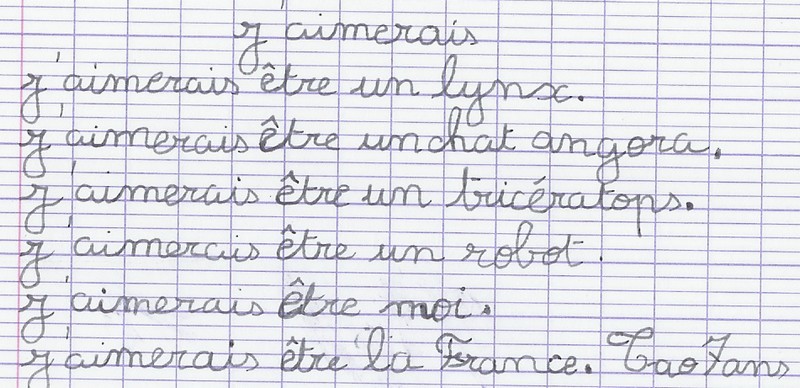 J'aimerais
J'aimerais être un lynx.
J'aimerais être un chat angora.
J'aimerais être un tricératops.
J'aimerais être un robot.
J'aimerais être moi.
J'aimerais être la France. Tao 7 ans